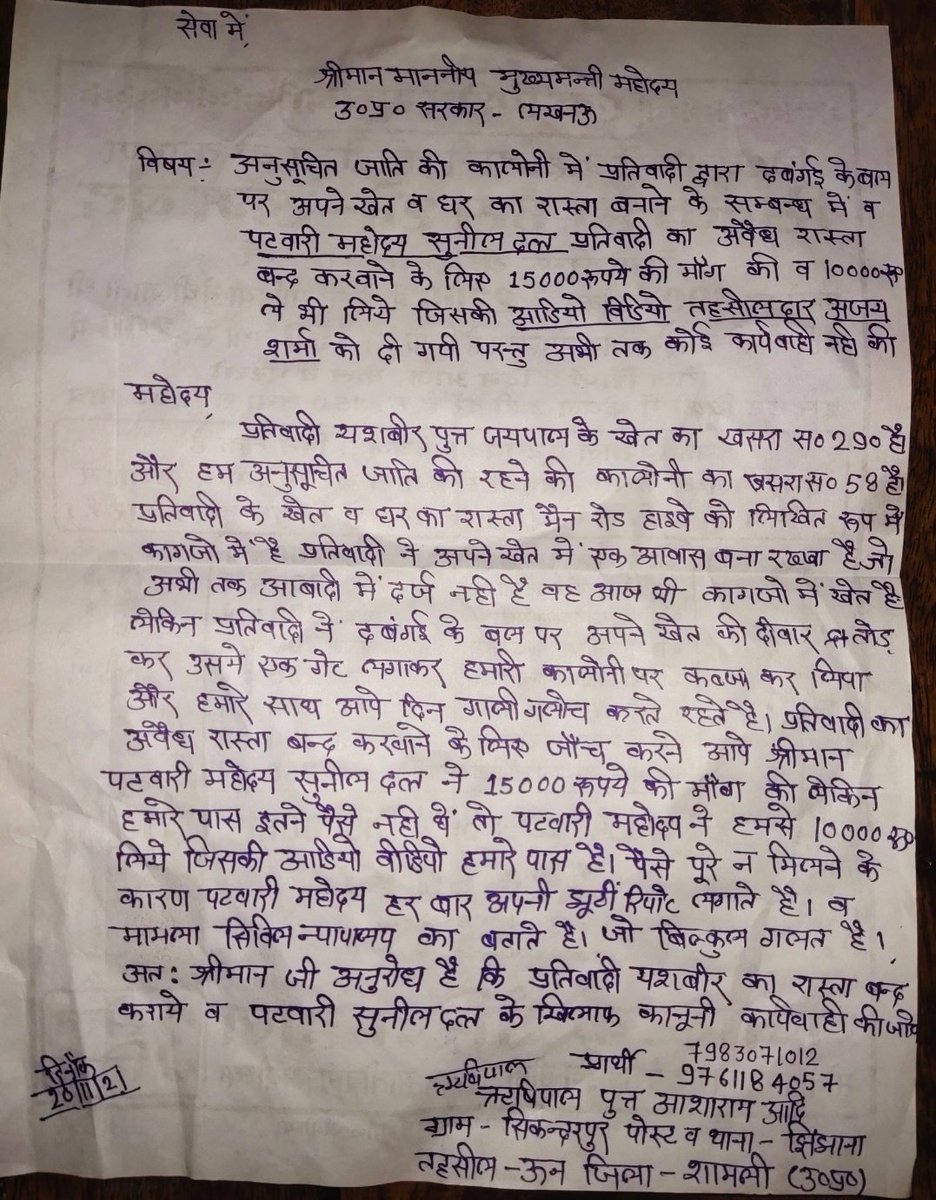 सेवा में,
श्रीमान माननीय मुख्यमन्त्री महोदय
उ०प्र० सरकार - लखनऊ
विषय: अनुसूचित जाति की कालोनी में प्रतिवादी द्वारा दबंगई के बल
पर अपने खेत व घर का रास्ता बनाने के सम्बन्ध में व
पटवारी महोदय सुनील दत्त प्रतिवादी का अवैध रास्ता
बन्द करवाने के लिए 15000 रूपये की माँग की व 10000 रू०
ले भी लिये जिसकी आडियो विडियो तहसीलदार अजय
शर्मा को दी गयी परन्तु अभी तक कोई कार्यवाही नही की
महोदय,
प्रतिवादी यशबीर पुत्र जयपाल के खेत का खसरा स० 290 है
और हम अनुसूचित जाति की रहने की कालोनी का खसरा स० 58 है।
प्रतिवादी के खेत व घर का रास्ता मैन रोड हाइवे को लिखित रूप में
कागजो में है प्रतिवादी ने अपने खेत में एक आवास बना रख्खा है जो
अभी तक आबादी में दर्ज नही है वह आज भी कागजो में खेत है
लेकिन प्रतिवादी नें दबंगई के बल पर अपने खेत की दीवार तोड़
कर उसमे एक गेट लगाकर हमारी कालोनी पर कब्जा कर लिया
और हमारे साथ आये दिन गाली गलोच करते रहते है। प्रतिवादी का
अवैध रास्ता बन्द करवाने के लिए जाँच करने आये श्रीमान
पटवारी महोदय सुनील दत्त ने 15000 रूपये की माँग की लेकिन
हमारे पास इतने पैसे नही थें तो पटवारी महोदय ने हमसे 10000 रू०
लिये जिसकी आडियो वीडियो हमारे पास है। पैसे पूरे न मिलने के
कारण पटवारी महोदय हर बार अपनी झूठी रिपोट लगाते है। व
मामला सिविल न्यायालय का बताते है। जो बिल्कुल गलत है।
अत: श्रीमान जी अनुरोध है कि प्रतिवादी यशबीर का रास्ता बन्द
कराये व पटवारी सुनील दत्त के खिलाफ कानूनी कार्यवाही की जाये
दिनाँक
20/11/21
प्रार्थी - 7983071012
9761184057
ऋषिपाल
ऋषिपाल पुत्र आशाराम आदि
ग्राम - सिकन्दरपुर पोस्ट व थाना - झिंझाना
तहसील - ऊन जिला - शामली (उ०प्र०)